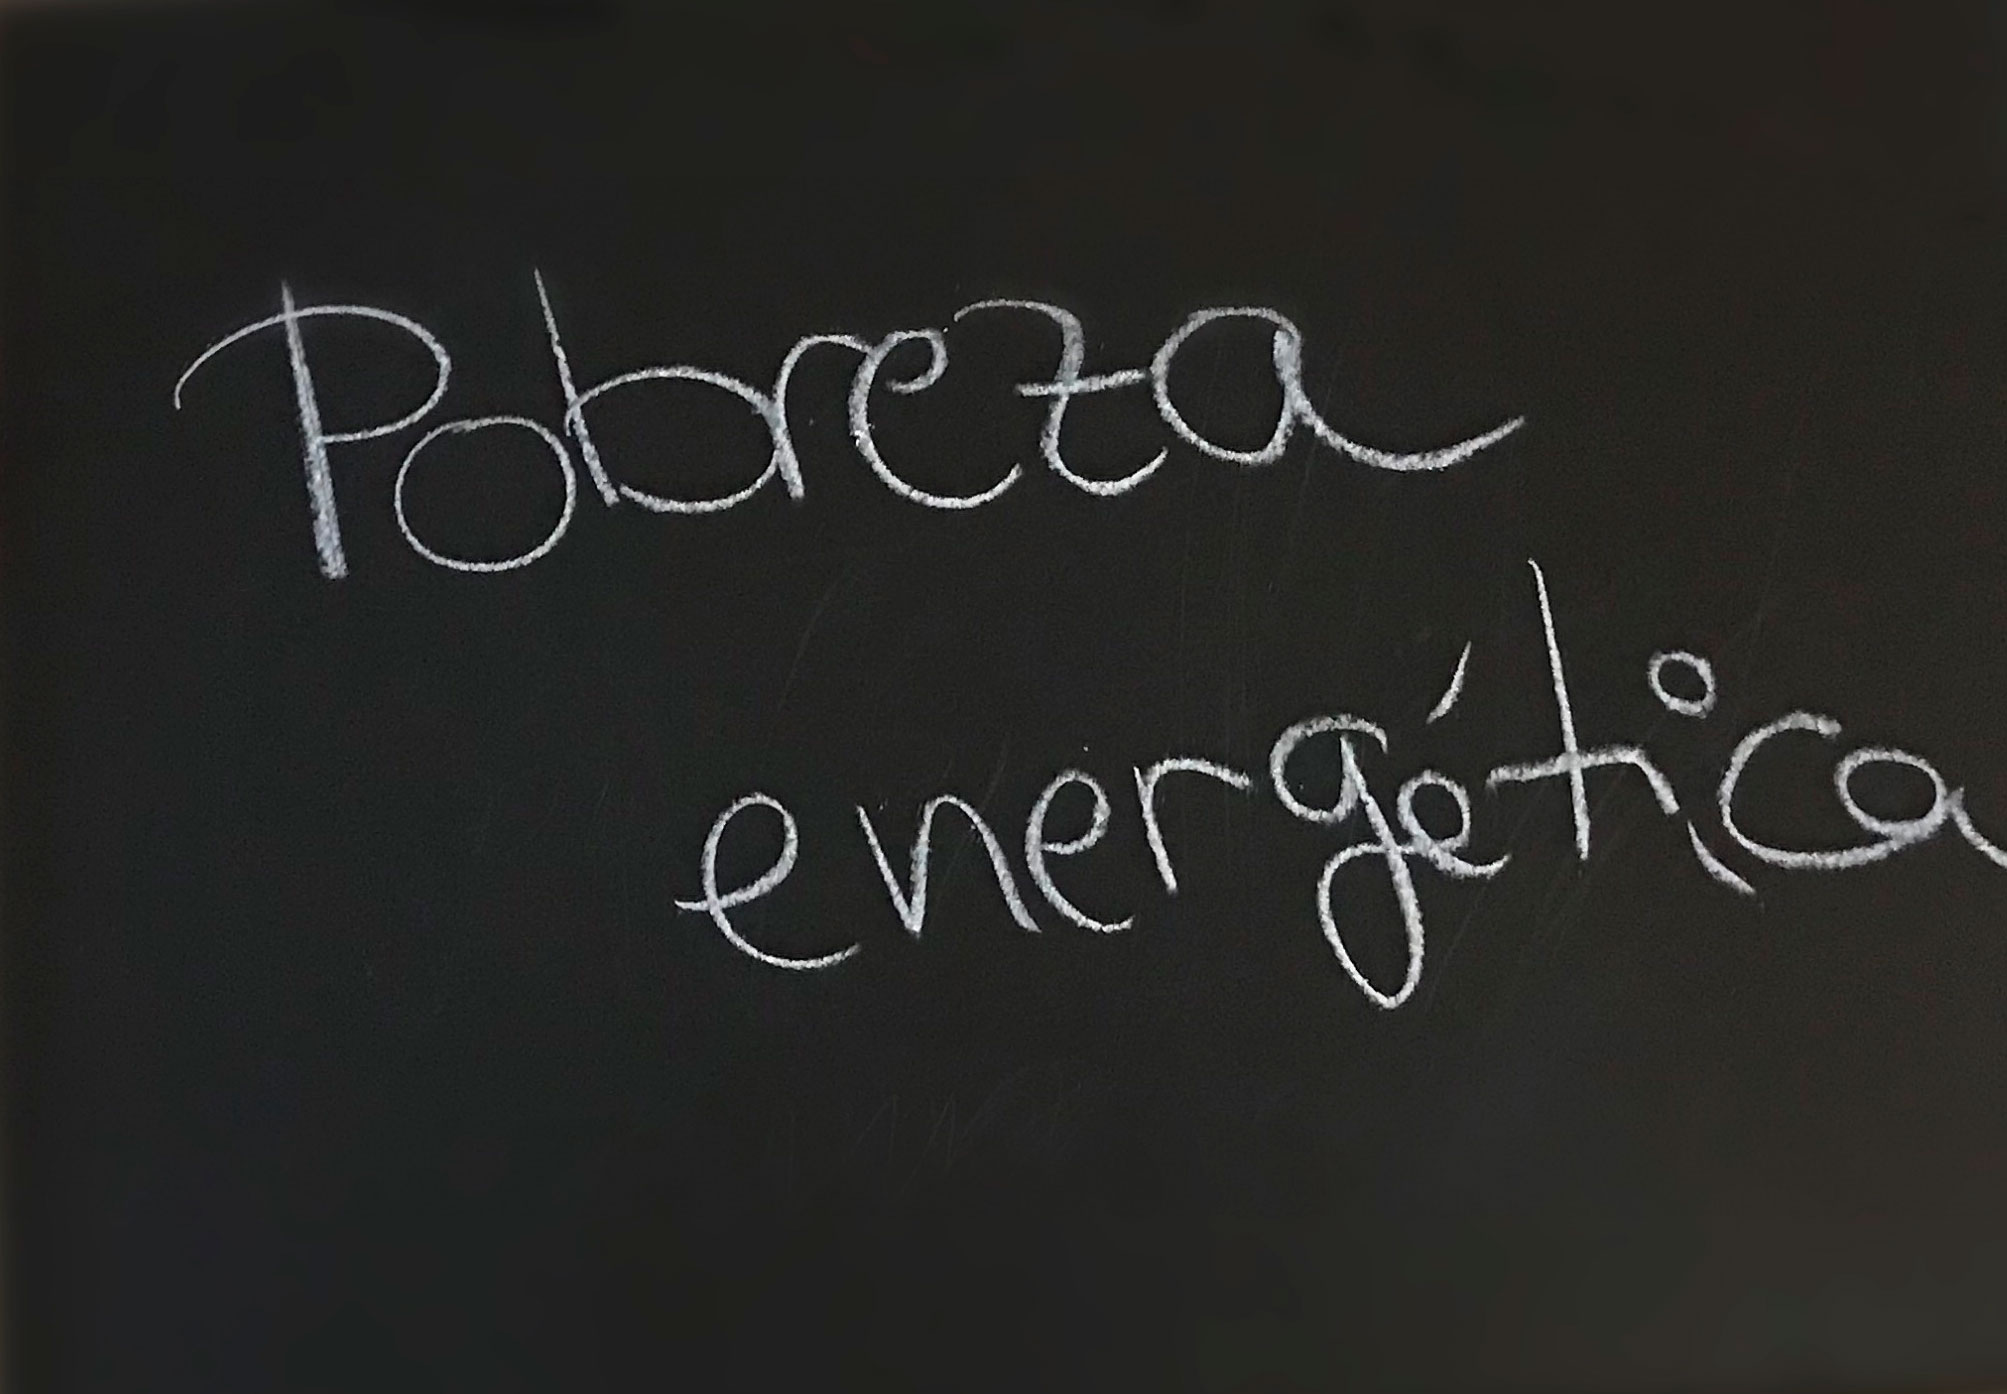 Pobreza
energética